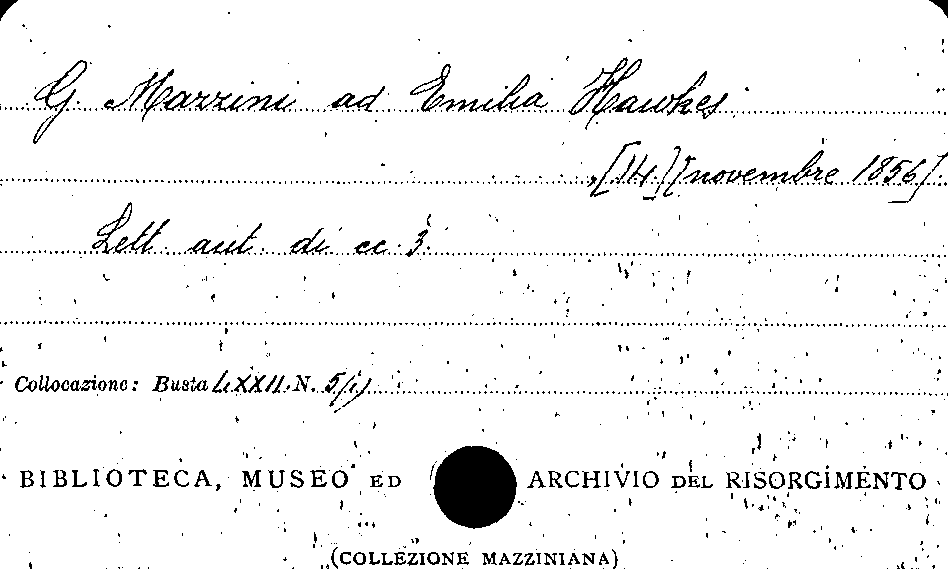 G. Mazzini ad Emilia Hawkes
, [14] [novembre 1856].
Lett. aut. di cc. 3.
Collocazione: Busta LXXII. N. 5/
BIBLIOTECA, MUSEO ED ARCHIVIO DEL RISORGIMENTO
(COLLEZIONE MAZZINIANA)